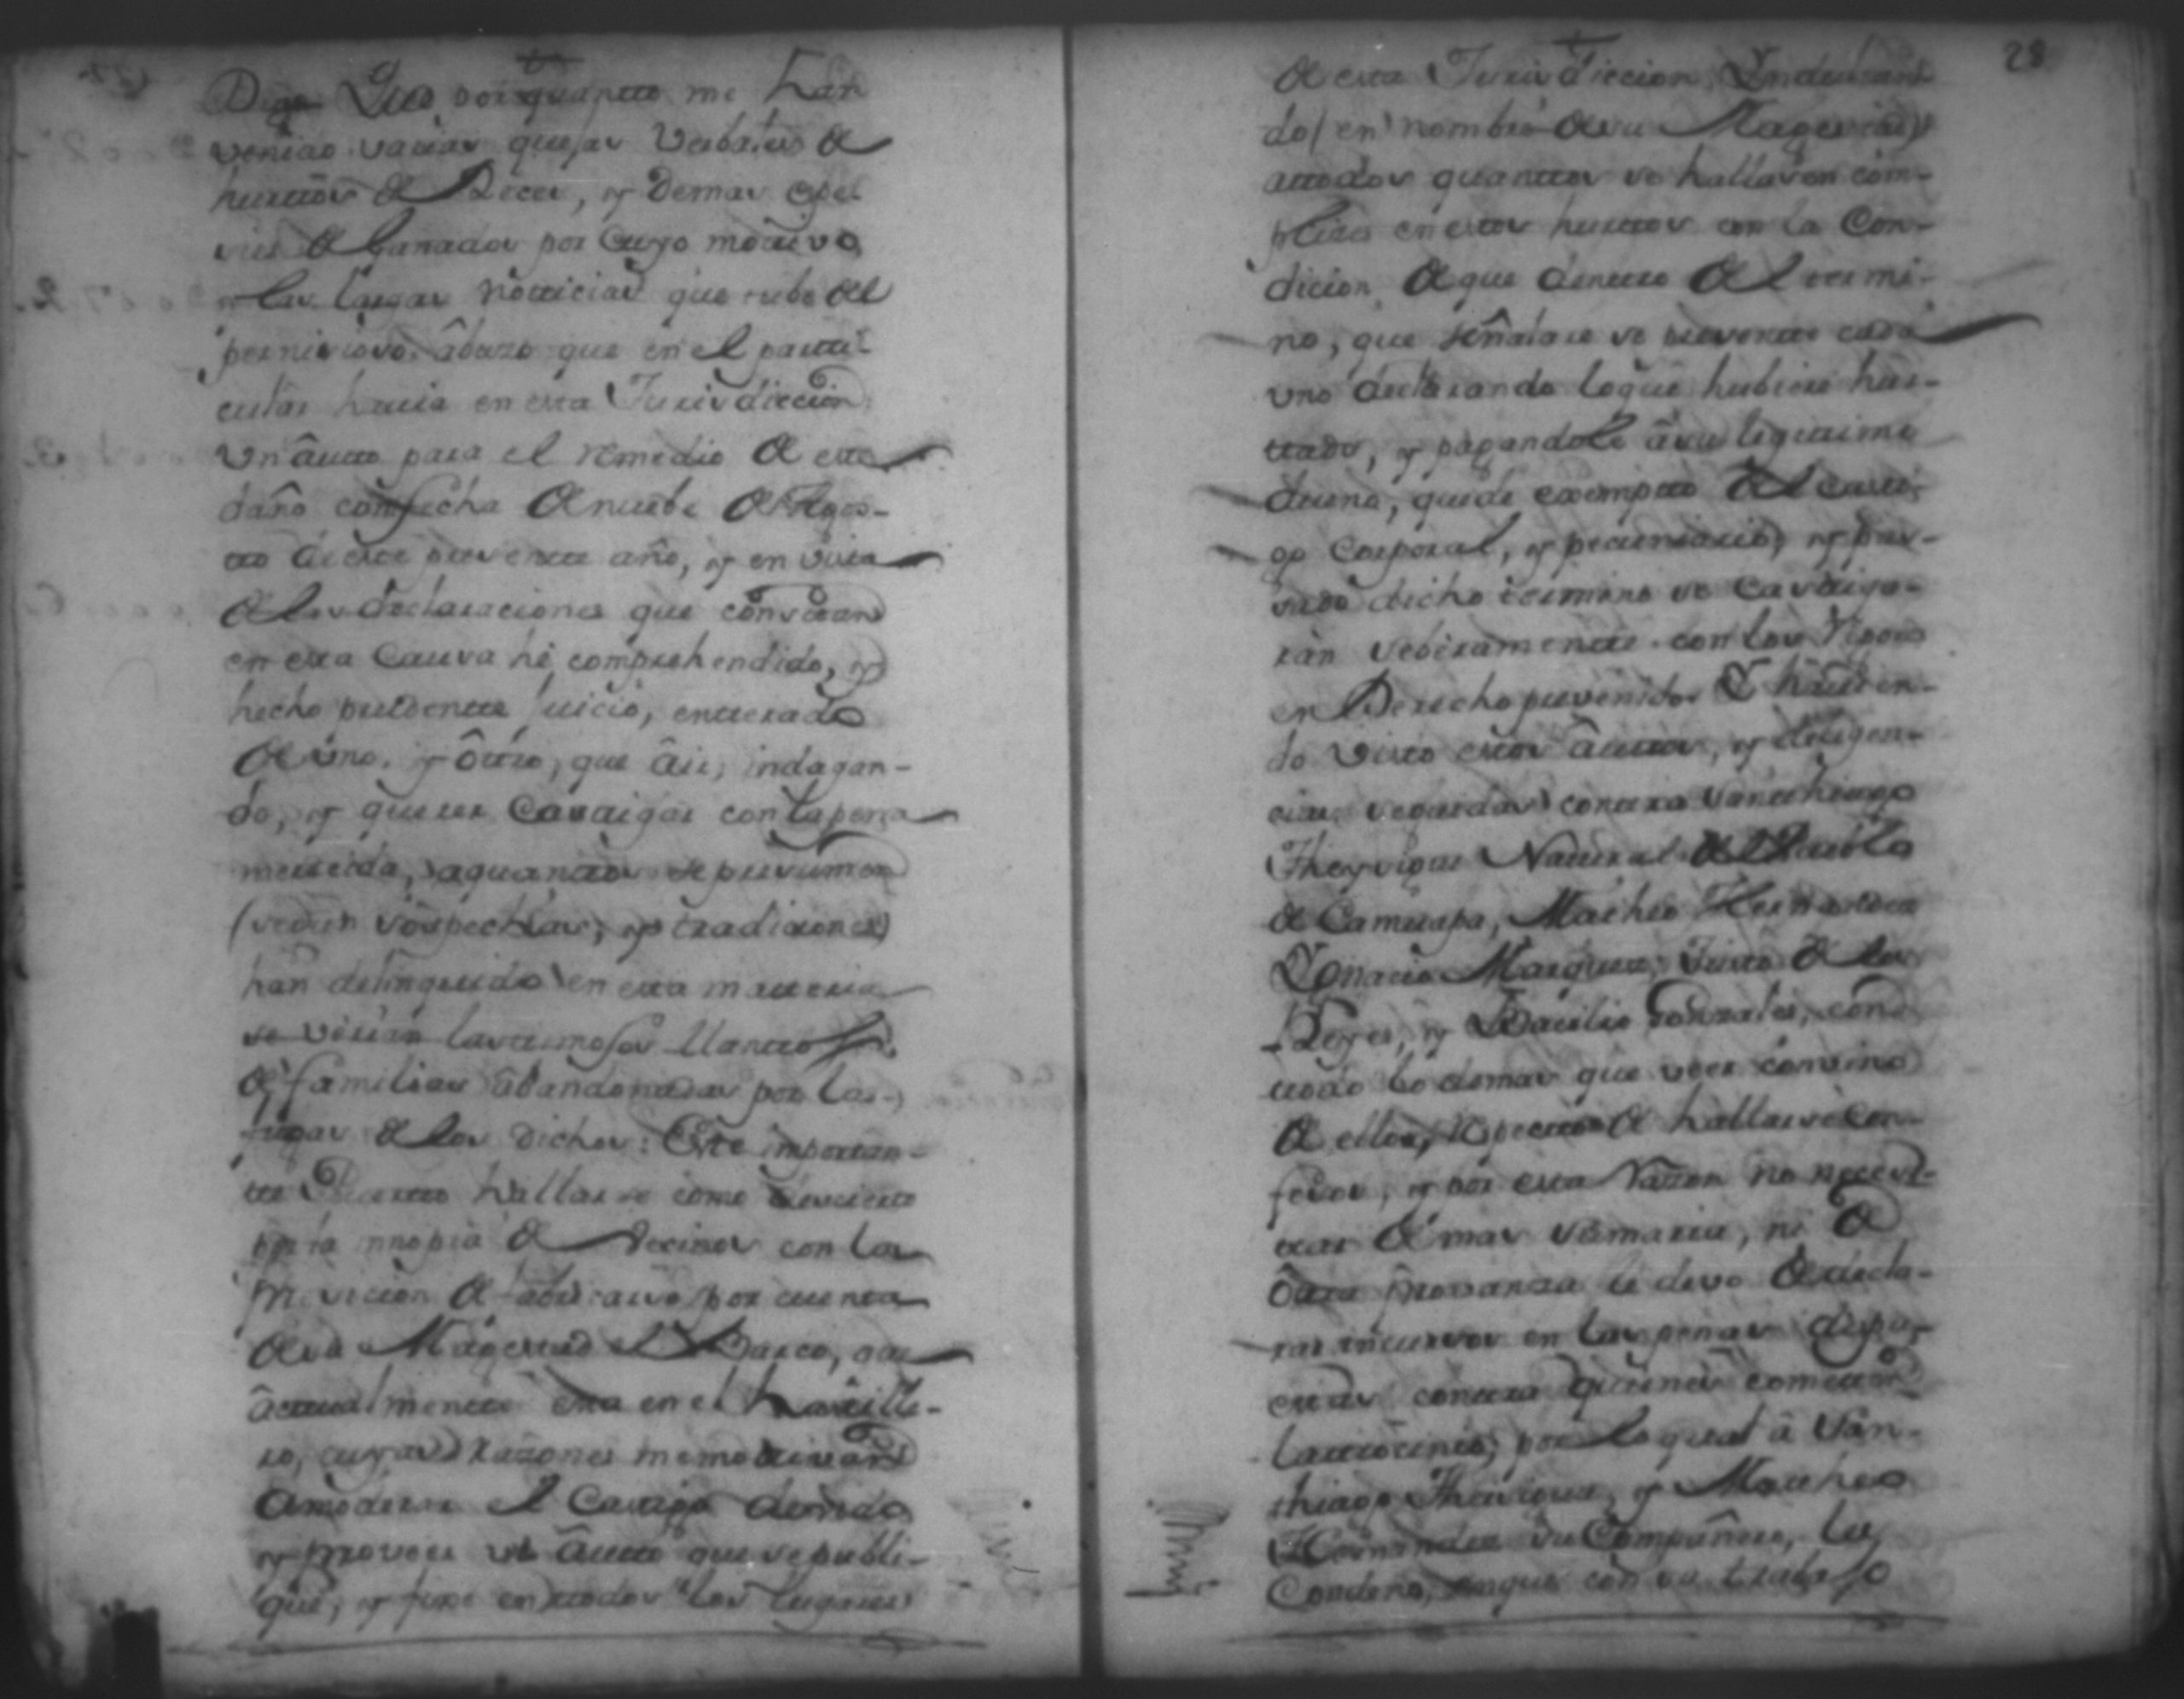 Digo Que por quantto me han
venido varias quejas Verbales de
hurttos de Reces, y demas espe-
cies de Ganados por Cuyo motivo,
y las largas notticias que tube del
pernicioso âbuzo que en el partti-
cular havia en esta Jurisdiccion
Un âutto para el remedio de este
daño con fecha de nuebe de Agos-
tto de este presentte año, y en vista
de las declaraciones que constan
en esta Causa hé comprehendido, y
hecho prudentte juicio, entterado
de uno, y ôttro, que âsi, indagan-
do, y querer Casttigar con la pena
merecida, a quanttos se presumen
(segun sospechas, y tradiciones)
han delinquido en esta matteria
se verian lasttimosos llanttos
de familias âbandonadas por las
fugas de los dichos: Este importan-
tte Puertto hallarse como desiertto
de Vecinos con la
precicion de fabricarse por cuenta
de su Magestad el Barco, que
âcttualmentte esta en el Asttille-
ro, cuyas razones me mottivaron
a moderar el Casttigo devido
y proveer un âutto que se publi-
que, y fixe en ttodos los lugares
28
de esta Jurisdiccion, Yndultan-
do (en nombre de su Magestad)
a ttodos quanttos se hallasen com-
plices en estos hurttos con la Con-
dicion de que dentto del termi-
no, que señalare se presentte cada
uno declarando lo que hubiere hur-
ttado, y pagandole â su legittimo
dueno, quede exempto del castti-
go Corporal, y pecuniario, y pas-
sado dicho termino se Casttiga-
ran seberamentte con los rigores
en Derecho prevenidos Y havien-
do visto estos âuttos, y diligen-
cias seguidas conttra Santhiago
Theyvique Natural del Pueblo
de Camuapa, Matheo Hernandez
Ygnacio Marquez, Justo de los
Reyes, y Bacilio Gonzales, con
ttodo lo demas que veer convino
de ellos, respectto de hallarse Con-
fesos, y por esta razon no necesi-
ttar de mas sumaria, ni de
Ôttra Provanza les devo de decla-
rar incursos en las penas dispu-
esttas conttra quienes cometten
lattrocinios, por lo qual â San-
thiago Theivique, y Mattheo
Hernandez su Compañero, les
Condeno, en que con su trabajo